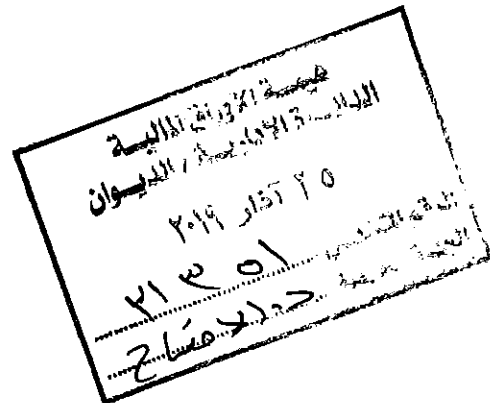 هيئة الأوراق المالية
الدائرة الإدارية / الديوان
٢٥ آذار ٢٠١٩
الرقم التسلسلي ٢١٣٥١
الجهة المختصة د. الافصاح